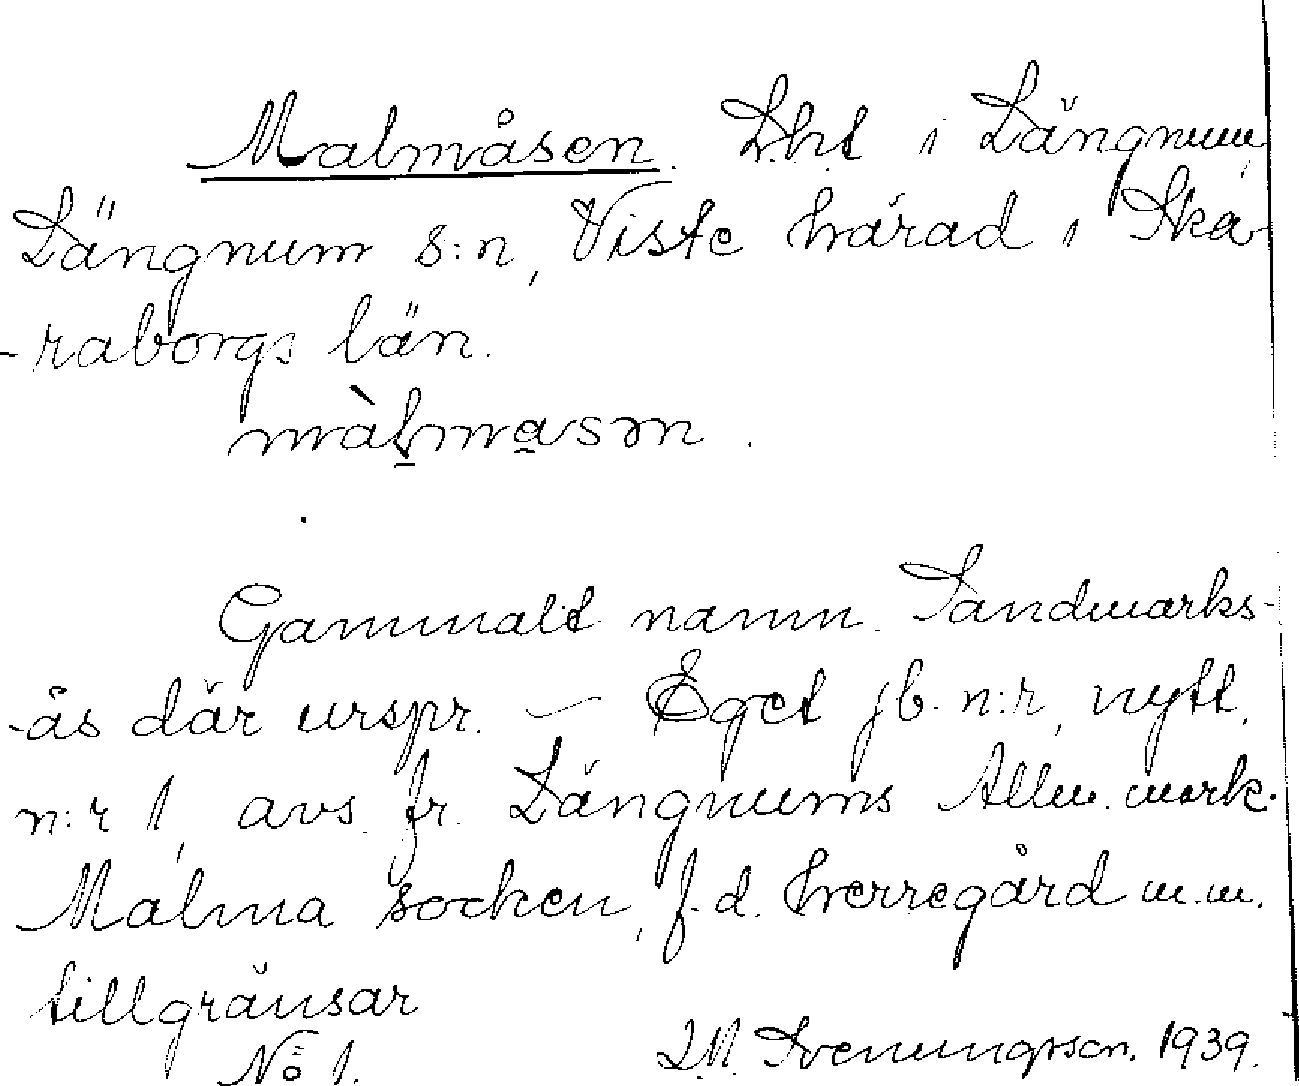 Malmåsen. Lht i Längnum,
Längnum s:n, Viste härad i Ska-
-raborgs län.
màlmasən.
Gammalt namn. Sandmarks-
-ås där urspr. — Eget jb. n:r, nytt.
n:r 1, avs. fr. Längnums Allm. mark.
Malma socken, f.d. herregård m.m.
tillgränsar
No 1. Svenungsson. 1939.